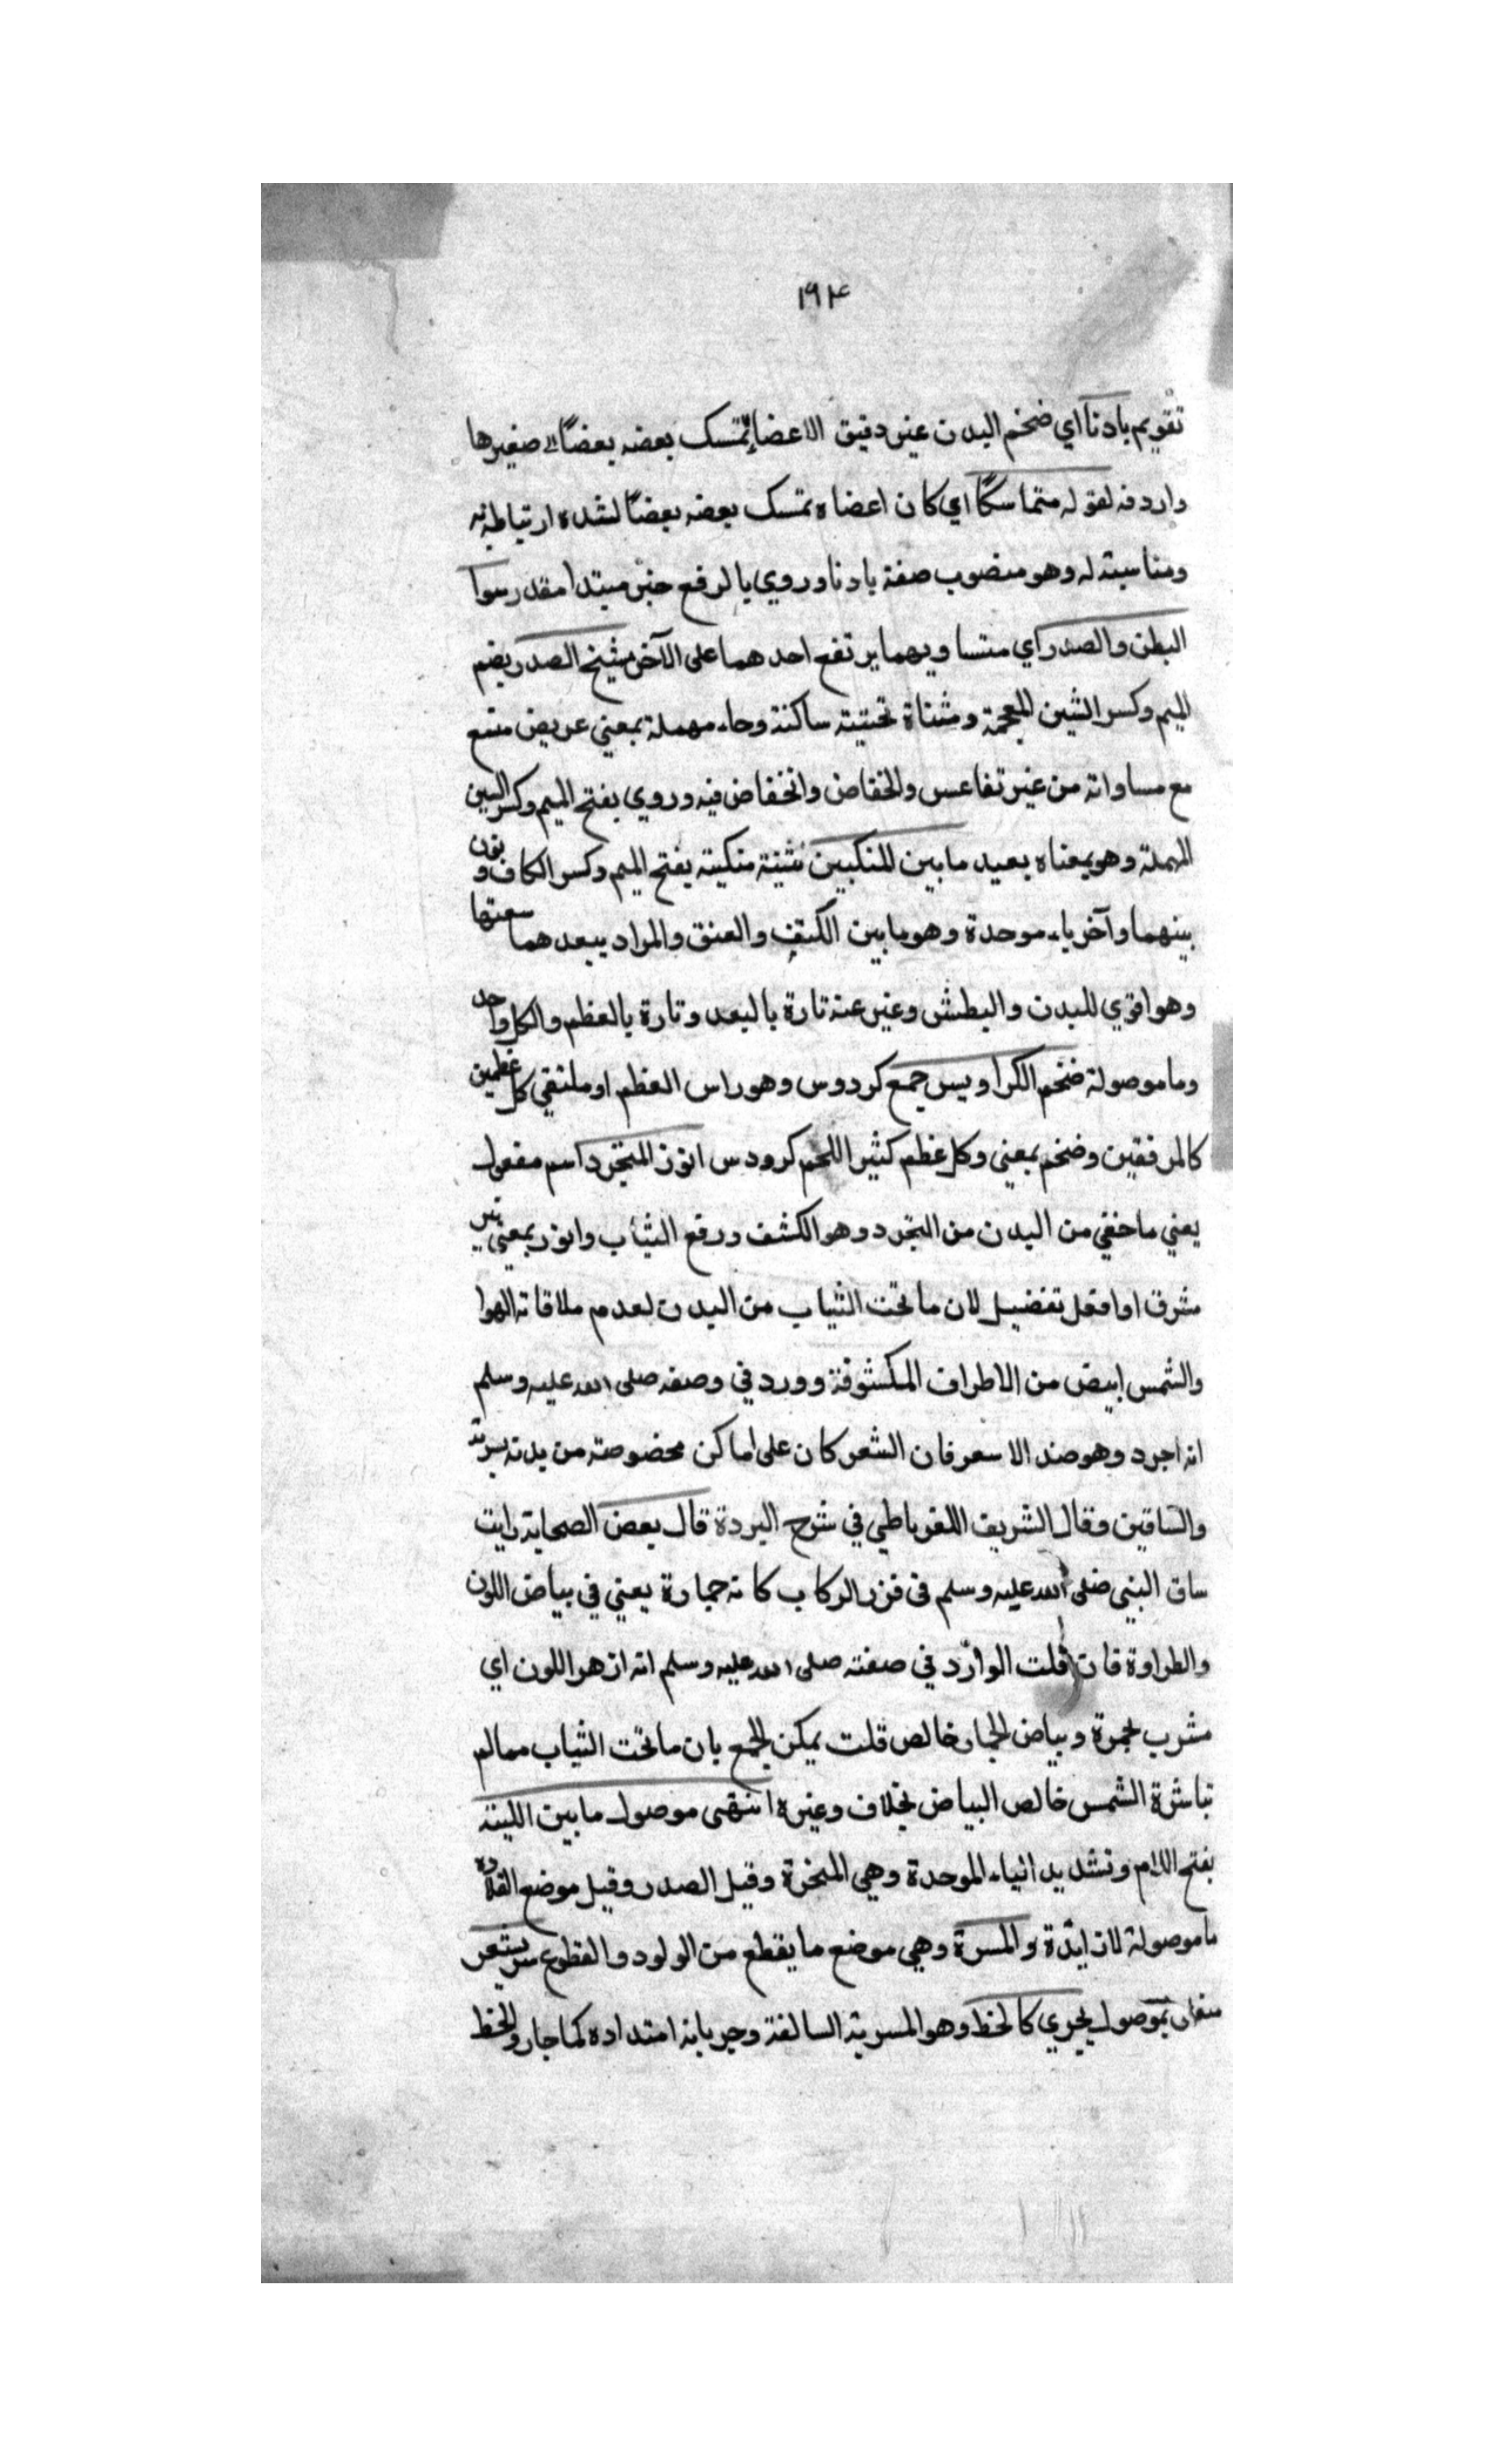 ١٩٤
تقويم بادنا اي ضخم البدن غير دقيق الاعضا تمسك بعضه بعضًا صغيرها
واردفه لقوله متماسكًا اي كان اعضاه تمسك بعضه بعضًا لشده ارتباطه به
ومناسبته له وهو منصوب صفة بادنا وروي بالرفع خبر مبتدا مقدر سوا
البطن والصدر اي متساويهما يرتفع احدهما على الآخر مشيح الصدر بضم
الميم وكسر الشين المعجمة ومثناة تحتيته ساكنة وحاء مهملة بمعني عريض متسع
مع مساواته من غير تقاعس والخفاض وانخفاض فيه وروي بفتح الميم وكسر السين
المهملة وهو بمعناه بعيد مابين المنكبين تثنية منكبة بفتح الميم وكسر الكاف ونون
بينهما وآخر باء موحدة وهو مابين الكتف والعنق والمراد ببعدهما سعتها
وهو اقوي للبدن والبطش وعبر عنه تارة بالبعد وتارة بالعظم والكل واحد
وما موصولة ضخم الكراديس جمع كردوس وهو راس العظم او ملتقي كل عظمين
كالمرفقين وضخم بمعني وكل عظم كثير اللحم كرودس انور المتجرد اسم مفعول
يعني ما خفي من البدن من التجرد وهو الكشف ورفع الثياب وانور بمعني نير
مشرق او افعل تفضيل لان ما تحت الثياب من البدن لعدم ملاقاته الهوا
والشمس ابيض من الاطراف المكشوفة وورد في وصفه صلى الله عليه وسلم
انه اجرد وهو ضد الاسعر فان الشعر كان على اماكن مخصوصة من بدنه
والساقين وقال الشريف الغرناطي في شرح البردة قال بعض الصحابة رايت
ساق النبي صلى الله عليه وسلم في غرز الركاب كانه جمارة يعني في بياض اللون
والطراوة فان قلت الوارد في صفته صلى الله عليه وسلم انه ازهر اللون اي
مشرب بحمرة وبياض الجمار خالص قلت يمكن الجمع بان ما تحت الثياب مما لم
تباشرة الشمس خالص البياض بخلاف وغيره انتهى موصول مابين اللبته
بفتح اللام وتشديد الباء الموحدة وهي المنحرة وقيل الصدر وقيل موضع القلادة
ما موصولة لازايدة والسرة وهي موضع ما يقطع من الولود والمقطوع سر بشعر
بموصول يجري كالخط وهو المسربة السالفة وجريانه امتداده كما جار والخط